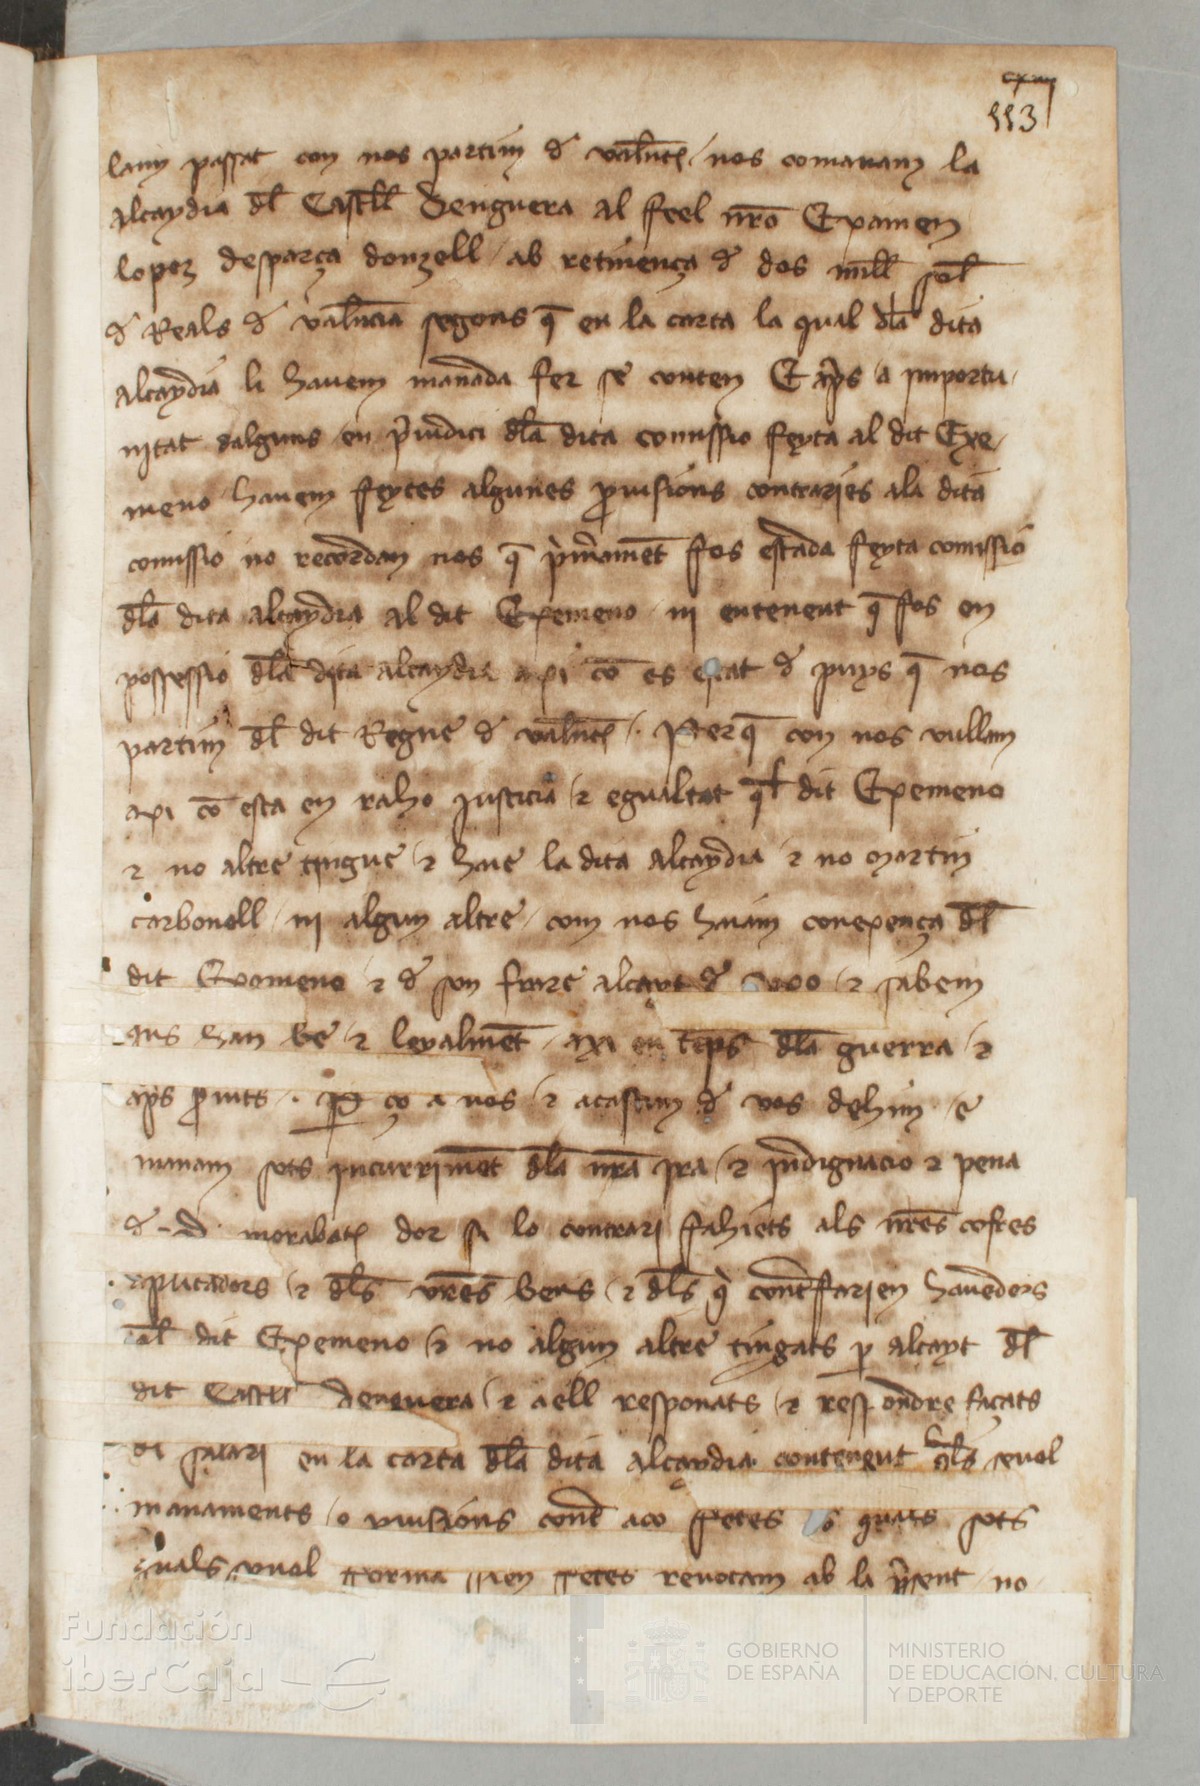 cxiii
113
lany passat con nos partim de valēcia nos comanam la
alcaydia dl Castell Denguera al feel nr̄o Examen
lopeç desparça donzell ab retinença de dos mill sol̄
de Reals de valēcia segons q̄ en la carta la qual dla dita
alcaydia li havem manada fer se conten E ap̄s a importu
nitat dalguns en p̄iudici dla dita comissio feyta al dit Exe
meno havem feytes algunes p̄uisions contraries ala dita
comissio no recordan nos q̄ p̄merament fos estada feyta comissio
dla dita alcaydia al dit Exemeno ni entenent q̄ fos en
possessio dla dita alcaydia axi cō es estat de puys q̄ nos
partim dl dit Regne de valēcia . Per q̄ con nos vullam
axi cō esta en raho justicia ⁊ egualtat q̄l dit Exemeno
⁊ no altre tingue ⁊ haie la dita alcaydia ⁊ no martin
carbonell ni algun altre com nos haiam conexença dl
dit Exemeno ⁊ de son frare alcayt de uxo ⁊ sabem
quens han be ⁊ leyalmēt axi en temps dla guerra ⁊
ap̄s seruits . Per ço a vos ⁊ acascun de vos dehim e
manam sots incurrimēt dla nr̄a ira ⁊ indignacio ⁊ pena
de .D. morabatins dor si lo contrari fahiets als nr̄es cofres
aplicadors ⁊ dls vr̄es bens ⁊ dls q̄ contrafarien hauedors
q̄l dit Exemeno ⁊ no algun altre tingats p alcayt dl
dit Castell denguera ⁊ a ell responats ⁊ respondre façats
dl salari en la carta dla dita alcaydia contengut q̄ls seuol
manaments o p̄uisions contra aço fetes o quals sots
quals seuol forma sien fetes reuocam ab la p̄sent no
Fundación
iberCaja
GOBIERNO
DE ESPAÑA
MINISTERIO
DE EDUCACIÓN, CULTURA
Y DEPORTE